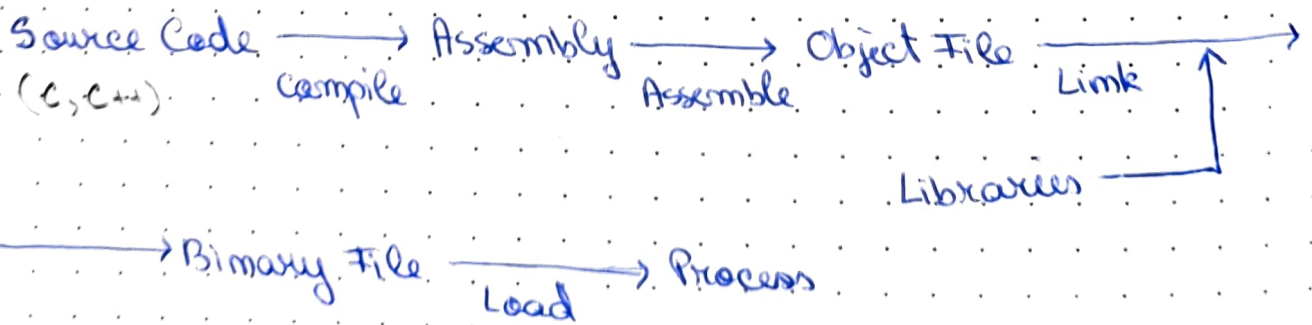 Source Code → Assembly → Object File →
(C, C++) Compile Assemble Link
Libraries
→ Binary File → Process
Load